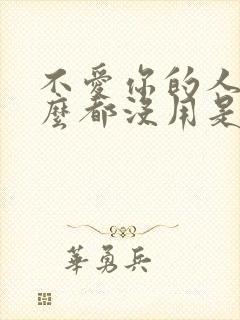 不愛你的人
麼都沒用是
華勇兵